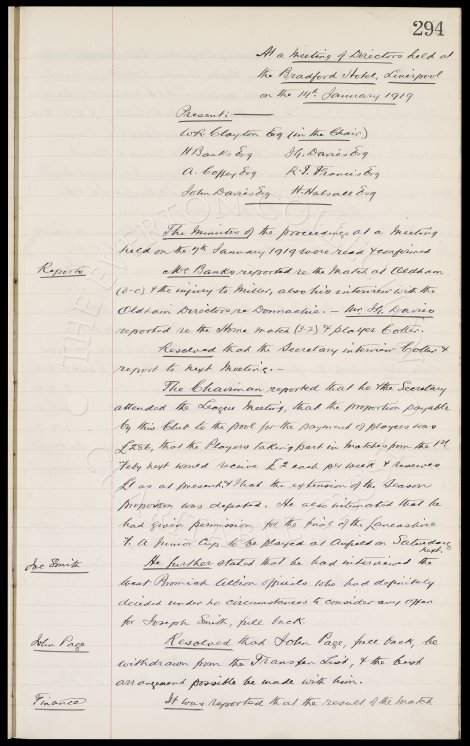 294
At a Meeting of Directors held at
the Bradford Hotel, Liverpool
on the 14th January 1919
Present:
W R Clayton Esq (in the Chair)
H Banks Esq J.G. Davies Esq
A. Coffey Esq R.T. Francis Esq
John Davies Esq H. Halsall Esq
The Minutes of the proceedings at a Meeting
held on the 7th January 1919 were read & confirmed
Reports Mr Banks reported re the Match at Oldham
(3-0) & the injury to Miller, also his interview with the
Oldham Directors re Donnachie. - Mr. J.G. Davies
reported re the Home match (3-2) & player
Resolved that the Secretary interview &
report to next Meeting. -
The Chairman reported that he & the Secretary
attended the League Meeting, that the proportion payable
by this Club to the pool for the payment of players was
£286, that the Players taking part in Matches from the 1st
Feby next would receive £2 each per week & reserves
£1 as at present & that the extension of the Season
proposition was defeated. He also intimated that he
had given permission for the final of the Lancashire
F. A Junior Cup to be played at Anfield on Saturday
next.
Joe Smith He further stated that he had interviewed the
West Bromich Albion officials who had definitely
decided under no circumstances to consider any offer
for Joseph Smith, full back.
John Page Resolved that John Page, full back, be
withdrawn from the Transfer List, & the best
arrangement possible be made with him.
Finance It was reported that the result of the Match